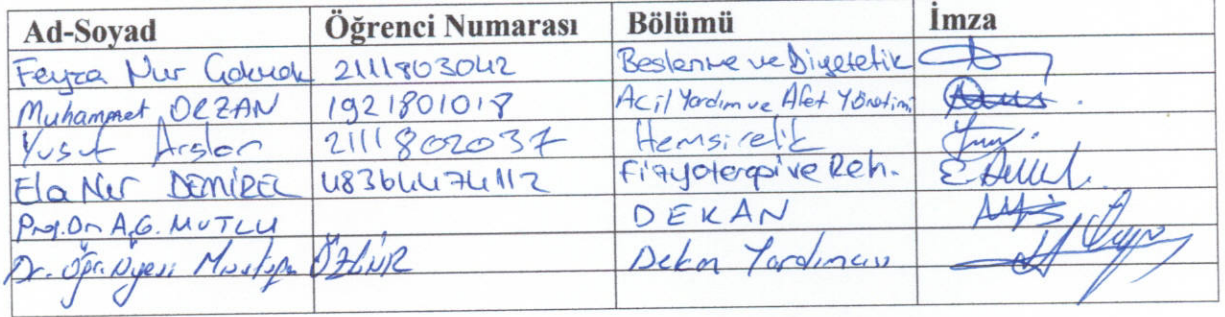 Ad-Soyad Öğrenci Numarası Bölümü İmza
Feyza Nur 2111803042 Beslenme ve Diyetetik
Muhammet 1921801018 Acil Yardım ve Afet Yönetimi
Yusuf Arslan 2111802037 Hemşirelik
Ela Nur DEMİREL 48364474112 Fizyoterapi ve Reh.
Prof. Dr. A.G. MUTLU DEKAN
Dr. Öğr. Üyesi Mustafa Dekan Yardımcısı